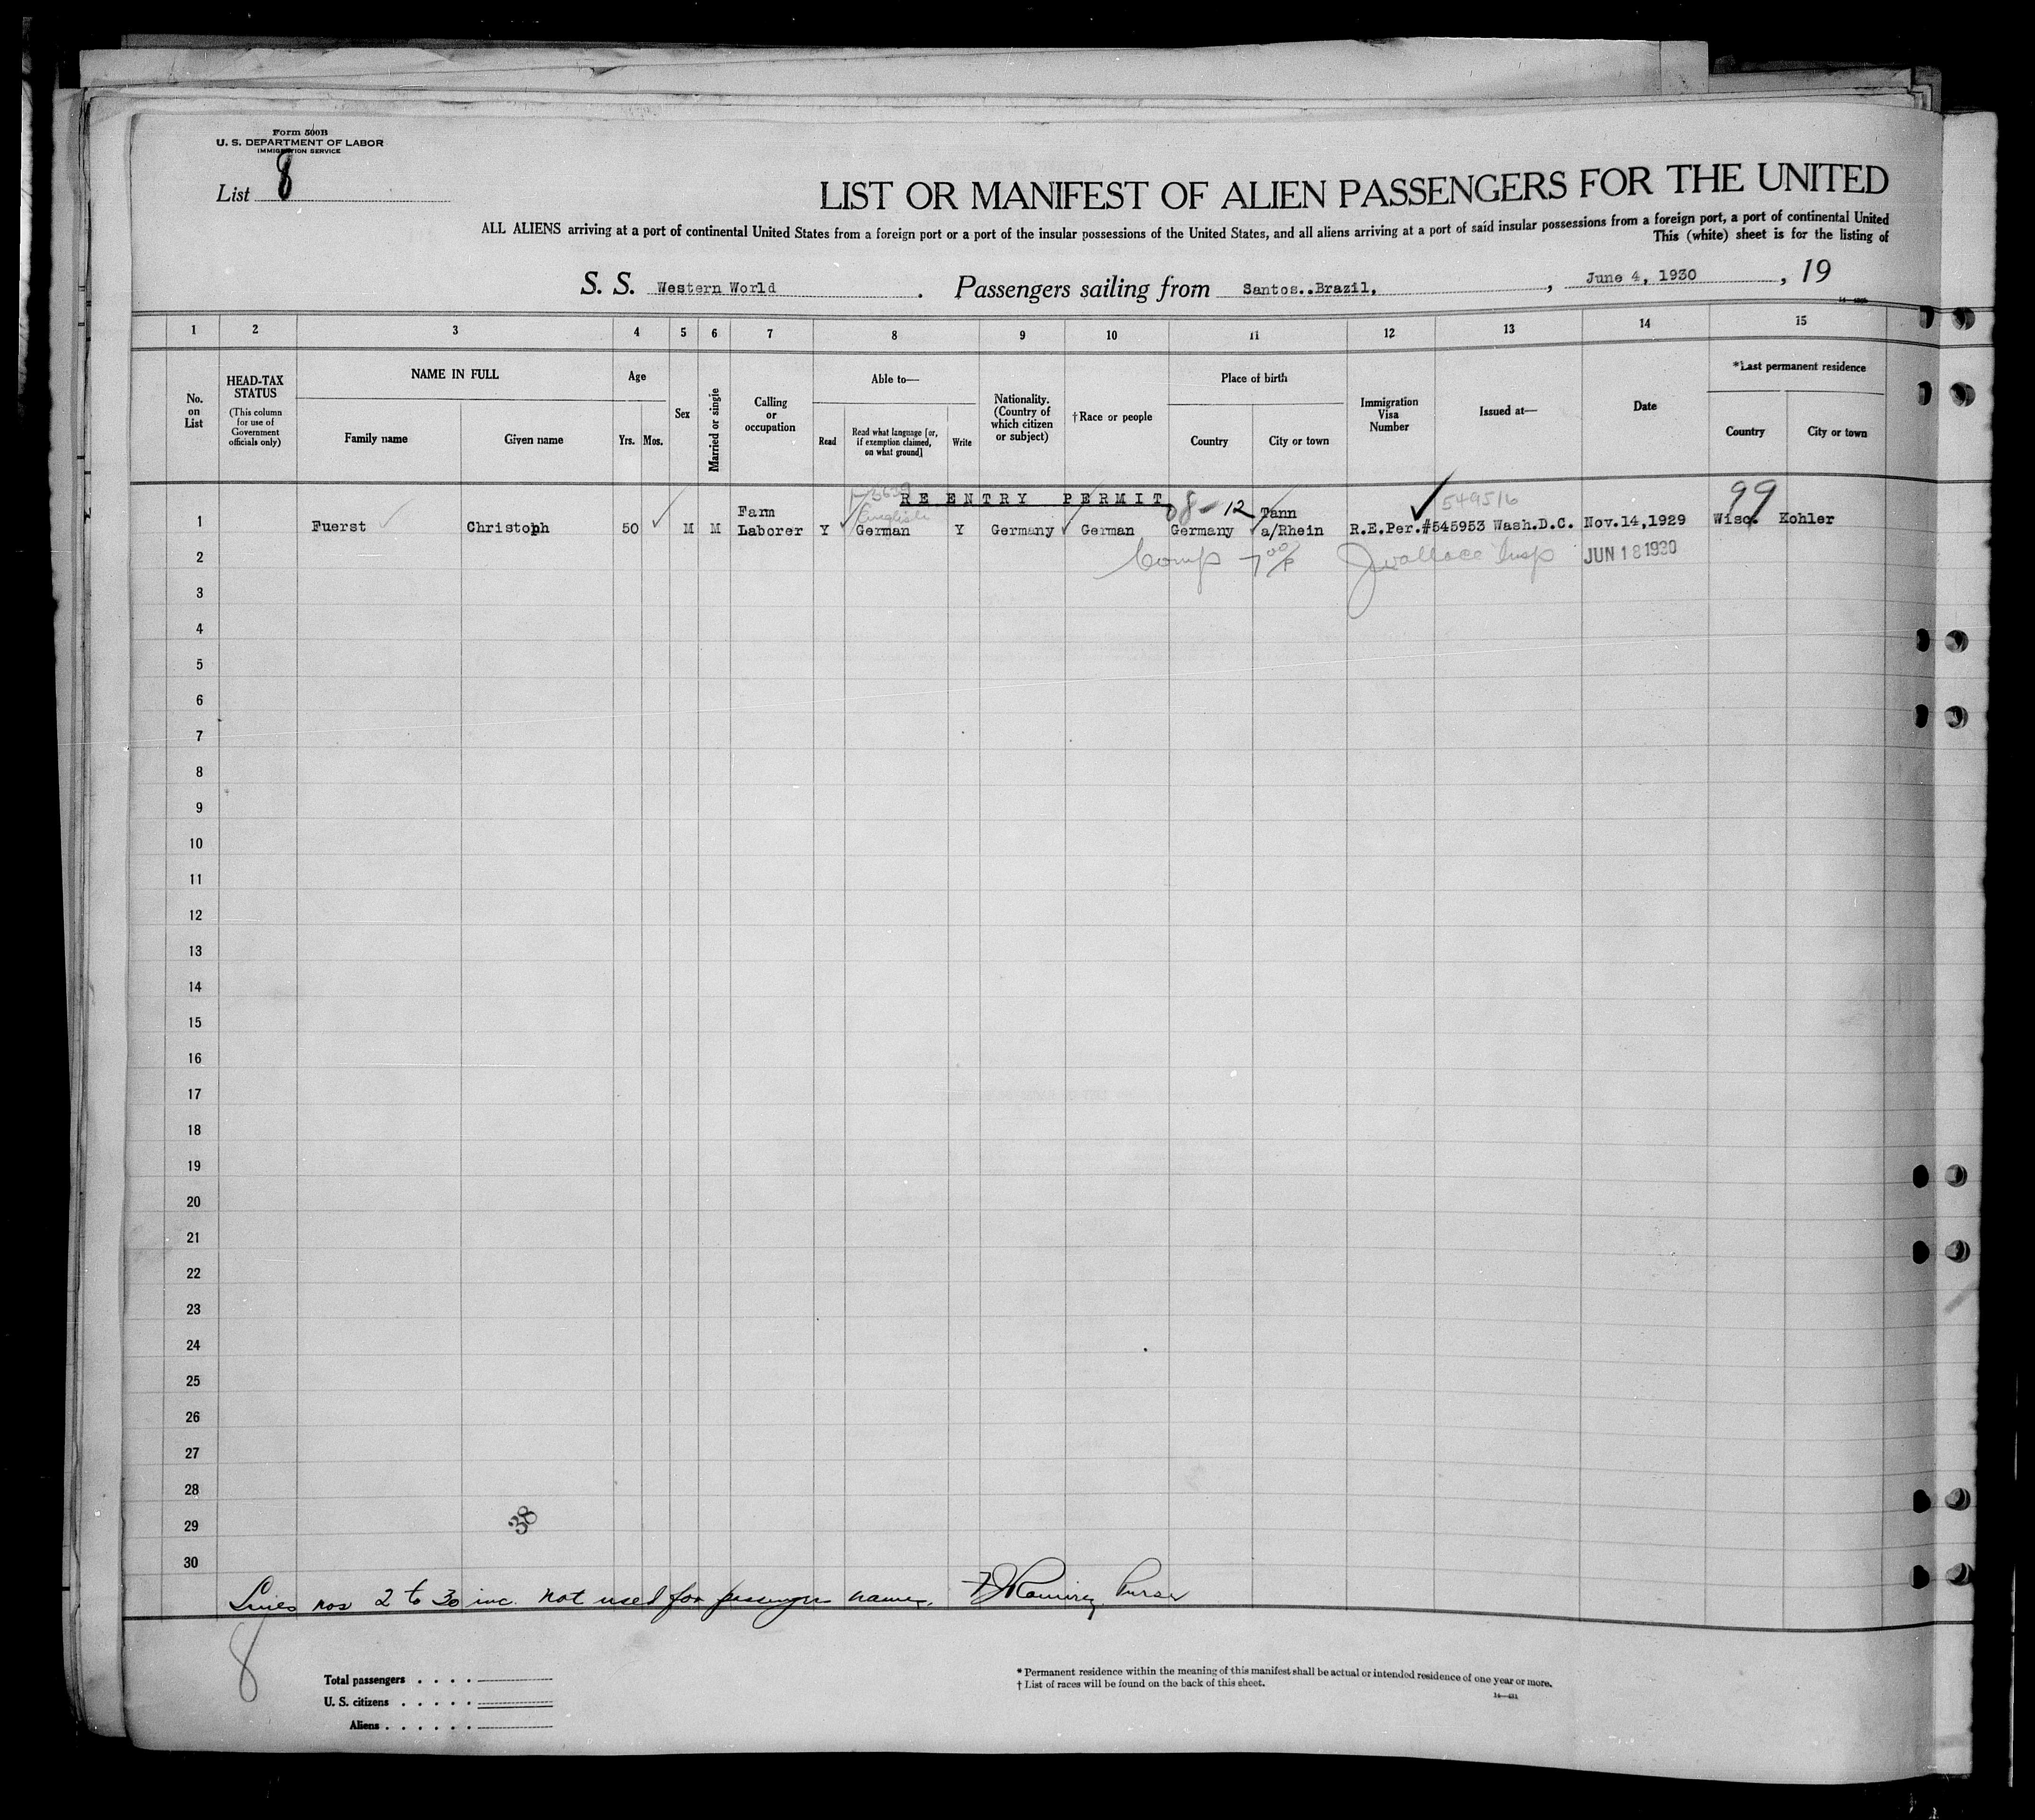 Form 500B
U. S. DEPARTMENT OF LABOR
IMMIGRATION SERVICE
List 8
LIST OR MANIFEST OF ALIEN PASSENGERS FOR THE UNITED
ALL ALIENS arriving at a port of continental United States from a foreign port or a port of the insular possessions of the United States, and all aliens arriving at a port of said insular possessions from a foreign port, a port of continental United
This (white) sheet is for the listing of
S. S. Western World . Passengers sailing from Santos..Brazil, , June 4, 1930 , 19
1 2 3 4 5 6 7 8 9 10 11 12 13 14 15
No. on List
HEAD-TAX STATUS
(This column for use of Government officials only)
NAME IN FULL
Family name
Given name
Age
Yrs. Mos.
Sex
Married or single
Calling or occupation
Able to—
Read
Read what language [or, if exemption claimed, on what ground]
Write
Nationality. (Country of which citizen or subject)
†Race or people
Place of birth
Country
City or town
Immigration Visa Number
Issued at—
Date
*Last permanent residence
Country
City or town
REENTRY PERMIT
8-12
549516
99
English
1 Fuerst Christoph 50 M M Farm Laborer Y German Y Germany German Germany Tann a/Rhein R.E.Per.#545953 Wash.D.C. Nov.14,1929 Wisc. Kohler
2 Comp 7 00 J Wallace Insp JUN 18 1930
3
4
5
6
7
8
9
10
11
12
13
14
15
16
17
18
19
20
21
22
23
24
25
26
27
28
29
38
30
Lines nos 2 to 30 inc. not used for passenger names. Purser
8
Total passengers . . . .
U. S. citizens . . . . .
Aliens . . . . . .
* Permanent residence within the meaning of this manifest shall be actual or intended residence of one year or more.
† List of races will be found on the back of this sheet.